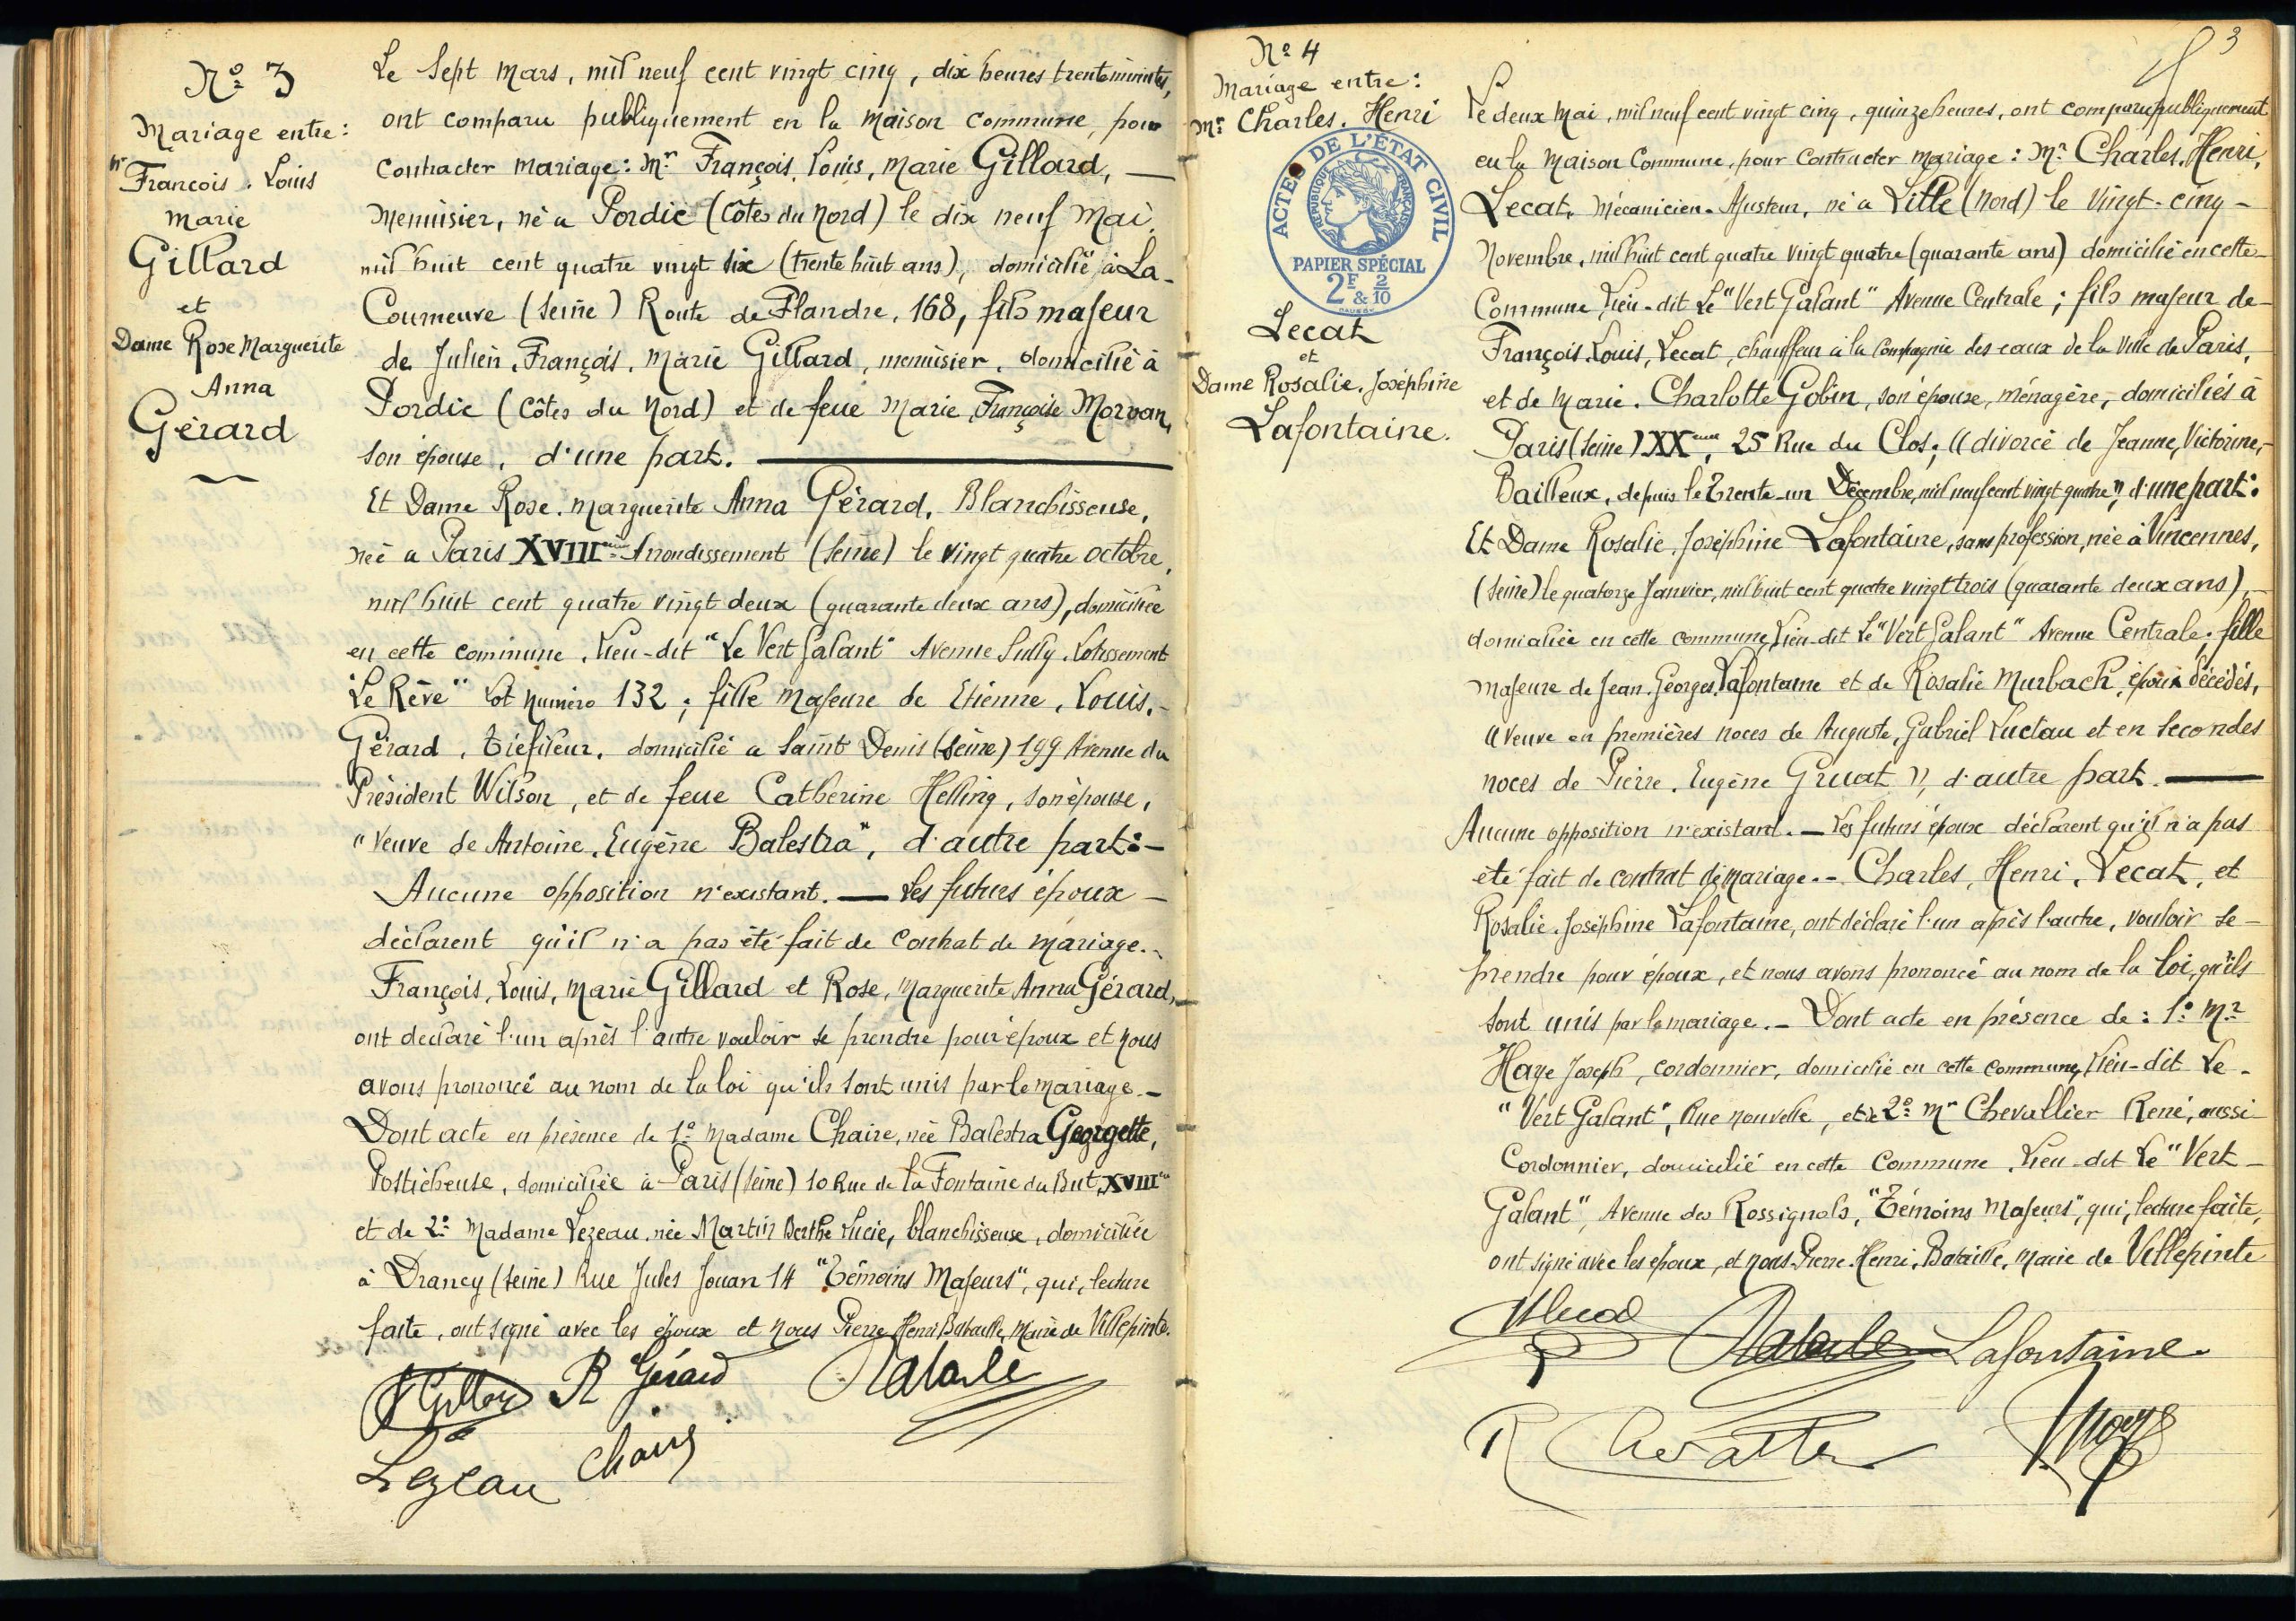 Nº 3
Mariage entre:
Mr
François. Louis
Marie
Gillard
et
Dame Rose Marguerite
Anna
Gérard
Le Sept Mars, mil neuf cent vingt cinq, dix heures trente minutes,
ont comparu publiquement en la Maison Commune, pour
Contracter Mariage: Mr François, Louis, Marie Gillard, —
Menuisier, né à Pordic (Côtes du Nord) le dix neuf Mai,
mil huit cent quatre vingt six (trente huit ans), domicilié à La-
Courneuve (Seine) Route de Flandre, 168, fils majeur
de Julien, François, Marie Gillard, menuisier, domicilié à
Pordic (Côtes du Nord) et de feue Marie Françoise Morvan,
son épouse, d'une part. —
Et Dame Rose, Marguerite Anna Gérard, Blanchisseuse,
née à Paris XVIIIème Arrondissement (Seine) le vingt quatre octobre,
mil huit cent quatre vingt deux (quarante deux ans), domiciliée
en cette commune, lieu-dit "Le Vert Galant" Avenue Sully, Lotissement
"Le Rêve" Lot numéro 132; fille Majeure de Etienne, Louis,-
Gérard, tréfileur, domicilié à Saint Denis (Seine) 199 Avenue du
Président Wilson, et de feue Catherine Helling, son épouse,
"Veuve de Antoine, Eugène Balestra", d'autre part:-
Aucune opposition n'existant. — Les futurs époux —
déclarent qu'il n'a pas été fait de Contrat de mariage.-
François, Louis, Marie Gillard et Rose, Marguerite Anna Gérard,
ont déclaré l'un après l'autre vouloir se prendre pour époux et nous
avons prononcé au nom de la loi qu'ils sont unis par le mariage.-
Dont acte en présence de 1º Madame Chaire, née Balestra Georgette,
Posticheuse, domiciliée à Paris (Seine) 10 Rue de la Fontaine du But, XVIIIe
et de 2º Madame Lezeau, née Martin Berthe Lucie, blanchisseuse, domiciliée
à Drancy (Seine) Rue Jules Jouan 14 "Témoins Majeurs", qui, lecture
faite, ont signé avec les époux et nous Pierre Henri Bataille, Maire de Villepinte.
R Gérard
Lezeau
Nº 4
Mariage entre:
Mr Charles. Henri
ACTES DE L'ÉTAT CIVIL
RÉPUBLIQUE FRANÇAISE
PAPIER SPÉCIAL
2F & 2/10
Lecat
et
Dame Rosalie. Joséphine
Lafontaine.
3
Le deux Mai, mil neuf cent vingt cinq, quinze heures, ont comparu publiquement
en la Maison Commune, pour Contracter mariage: Mr Charles, Henri,
Lecat, Mécanicien-Ajusteur, né à Lille (Nord) le Vingt-cinq-
Novembre, mil huit cent quatre vingt quatre (quarante ans) domicilié en cette-
Commune, lieu-dit Le "Vert Galant" Avenue Centrale; fils majeur de-
François. Louis, Lecat, chauffeur à la Compagnie des eaux de la Ville de Paris,
et de Marie. Charlotte Gobin, son épouse, ménagère, domiciliés à
Paris (Seine) XXème, 25 Rue du Clos; "divorcé de Jeanne, Victorine,-
Bailleux, depuis le Trente-un Décembre, mil neuf cent vingt quatre", d'une part:
Et Dame Rosalie, Joséphine Lafontaine, sans profession, née à Vincennes,
(Seine) le quatorze Janvier, mil huit cent quatre vingt trois (quarante deux ans),-
domiciliée en cette commune, lieu-dit Le "Vert Galant" Avenue Centrale; fille
majeure de Jean. Georges Lafontaine et de Rosalie Murbach, époux décédés,
"veuve en premières noces de Auguste, Gabriel Luctau et en Secondes
noces de Pierre, Eugène Gruat", d'autre part. —
Aucune opposition n'existant. — Les futurs époux déclarent qu'il n'a pas
été fait de contrat de mariage.- Charles, Henri, Lecat, et
Rosalie. Joséphine Lafontaine, ont déclaré l'un après l'autre, vouloir se-
prendre pour époux, et nous avons prononcé au nom de la loi, qu'ils
sont unis par le mariage.- Dont acte en présence de: 1º Mr
Haye Joseph, cordonnier, domicilié en cette commune, lieu-dit Le-
"Vert Galant", Rue Nouvelle, et de 2º Mr Chevallier René, aussi
Cordonnier, domicilié en cette Commune, lieu-dit Le "Vert-
Galant", Avenue des Rossignols, "Témoins Majeurs", qui, lecture faite,
ont signé avec les époux, et nous Pierre. Henri, Bataille, Maire de Villepinte
Lafontaine